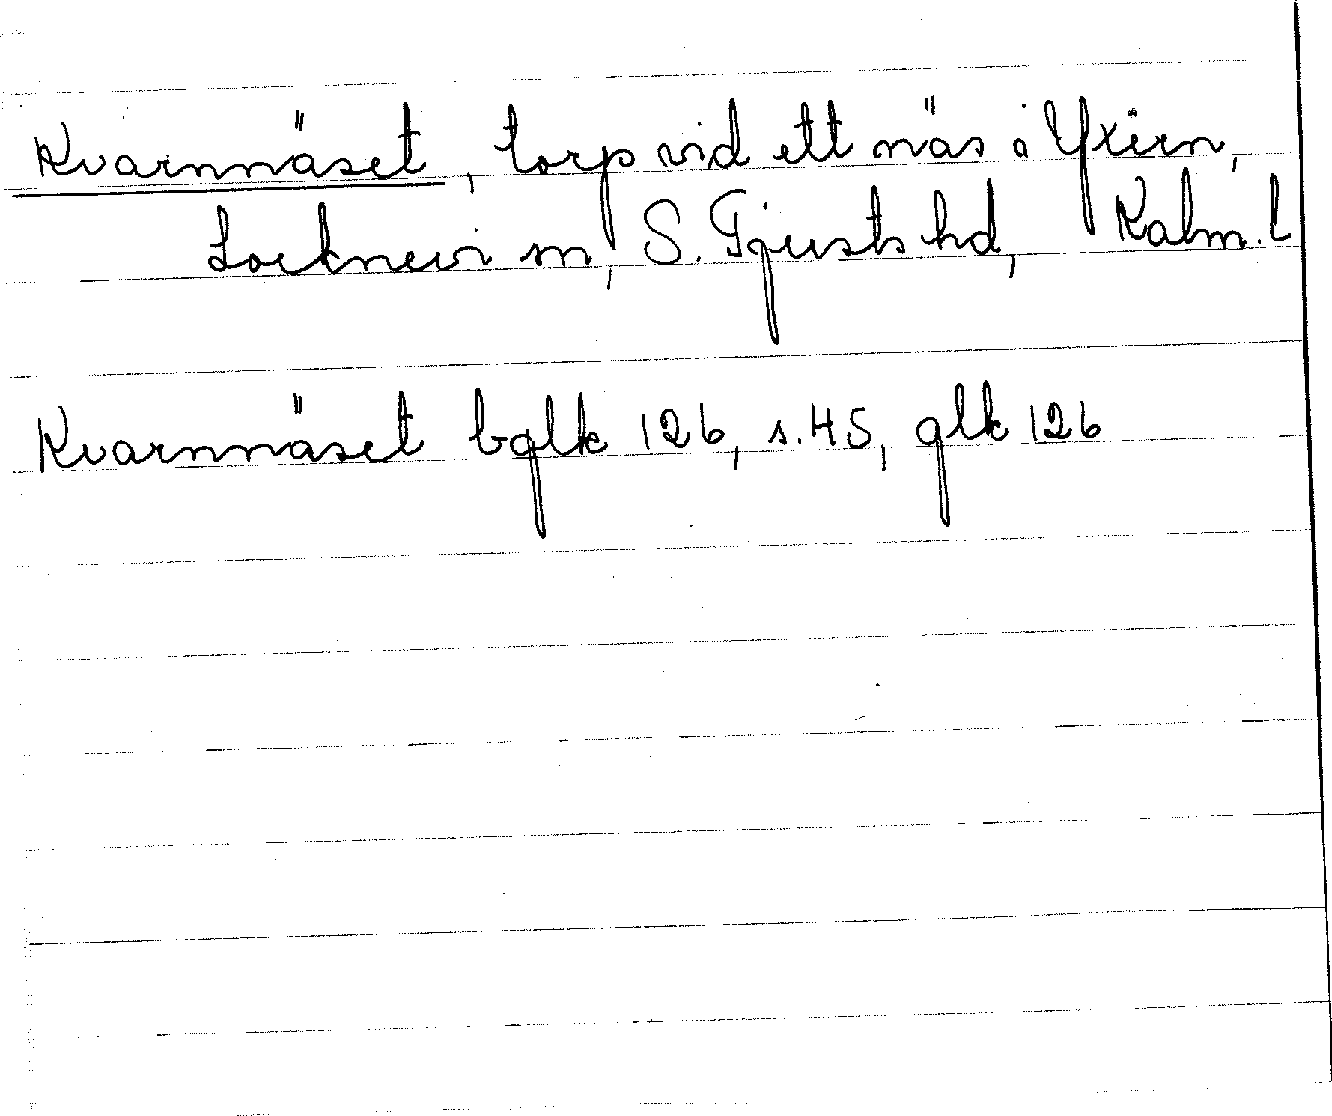 Kvarnnäset, torp vid ett näs i Yxern,
Locknevi sn, S. Tjusts hd, Kalm. L
Kvarnnäset bglk 126, s. 45, glk 126